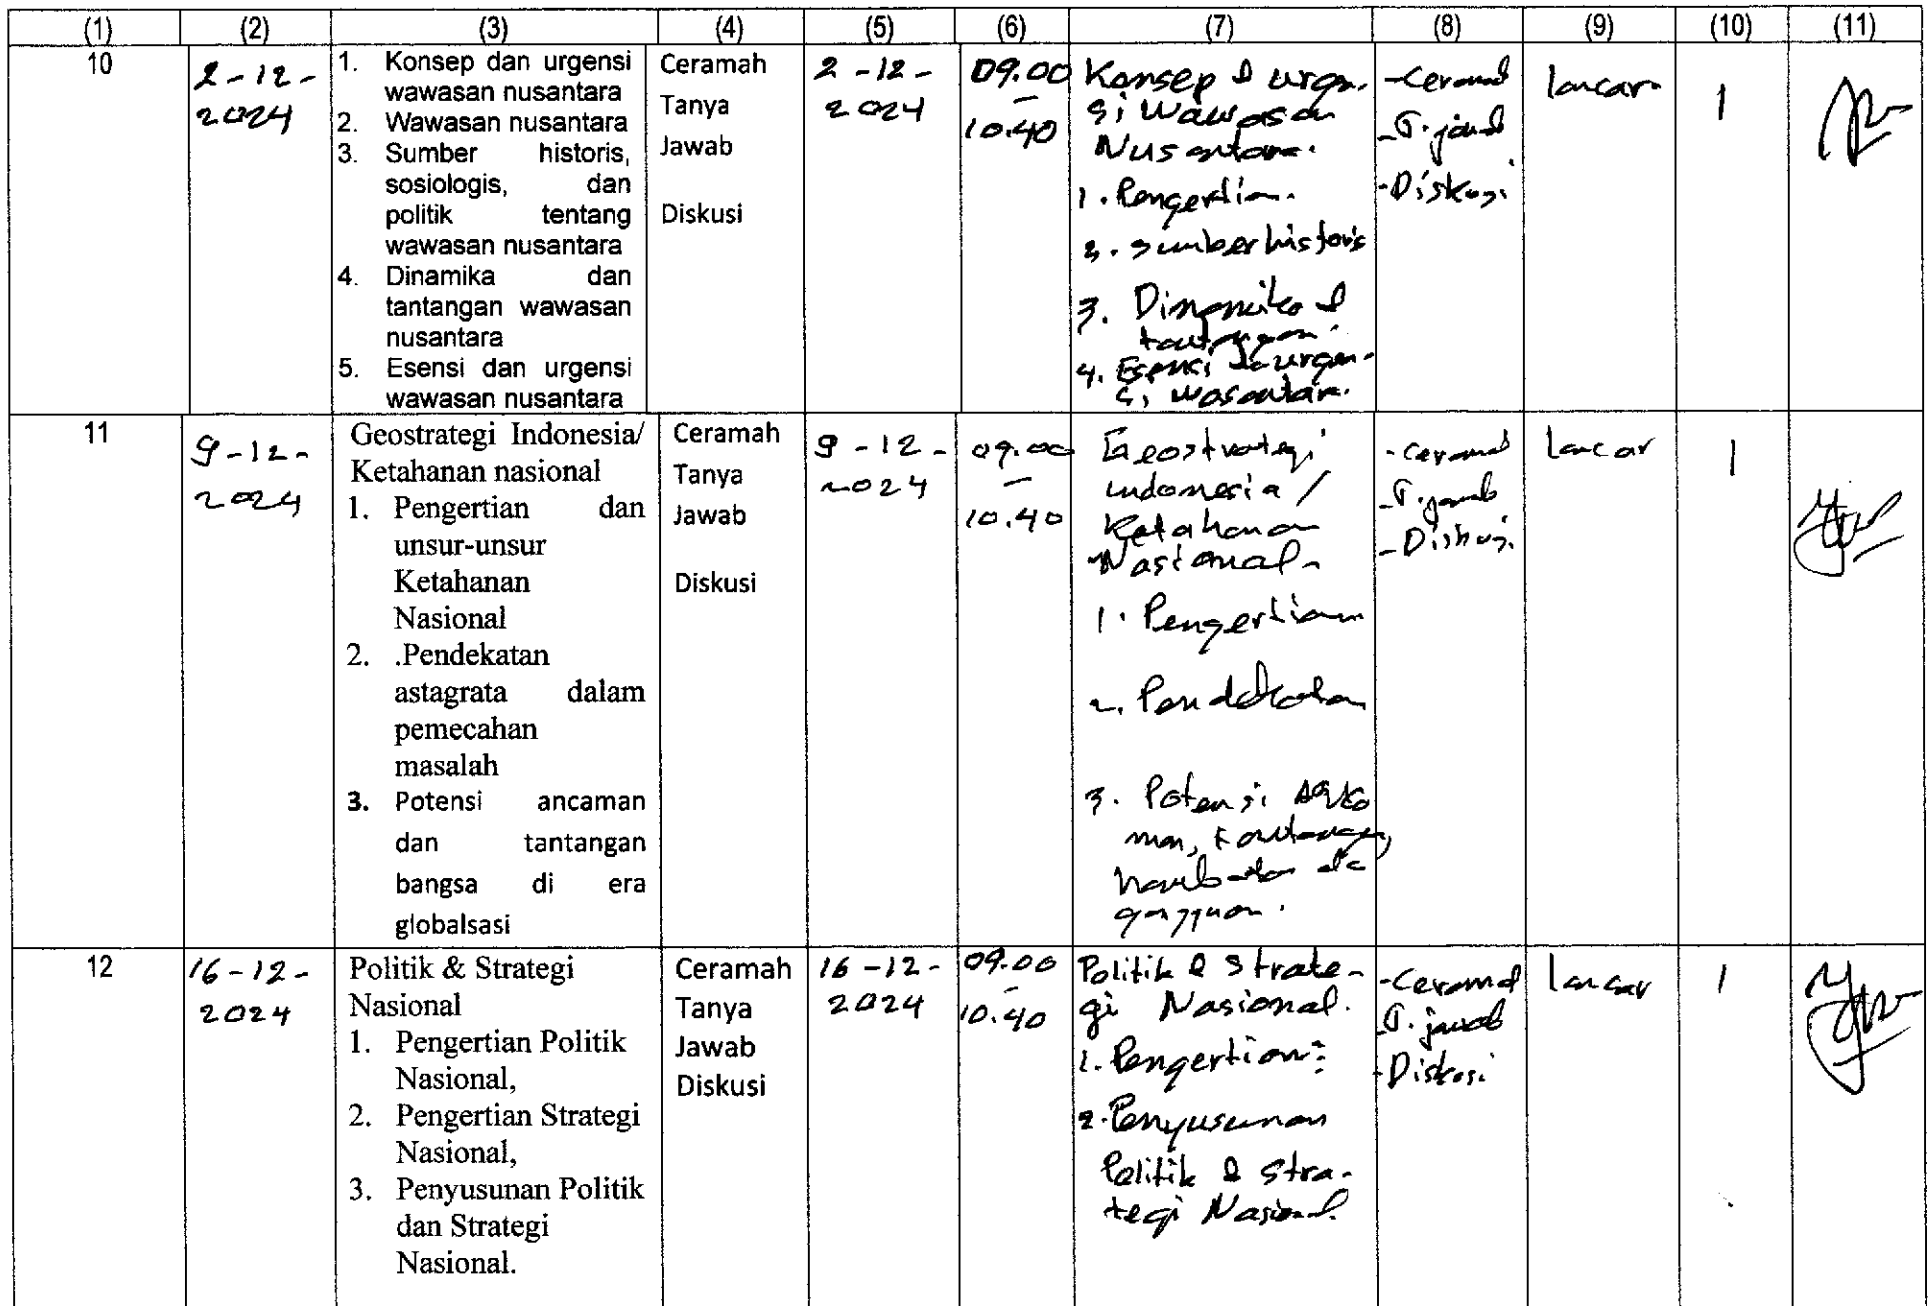 (1) (2) (3) (4) (5) (6) (7) (8) (9) (10) (11)
10
2-12-
2024
1. Konsep dan urgensi
wawasan nusantara
2. Wawasan nusantara
3. Sumber historis,
sosiologis, dan
politik tentang
wawasan nusantara
4. Dinamika dan
tantangan wawasan
nusantara
5. Esensi dan urgensi
wawasan nusantara
Ceramah
Tanya
Jawab
Diskusi
2-12-
2024
09.00
-
10.40
Konsep & urgen-
si Wawasan
Nusantara.
1. Pengertian.
2. Sumber historis
3. Dinamika &
tantangan.
4. Esensi & urgen-
si wasantara.
-Ceramah
-T. jawab
-Diskusi
lancar
1
11
9-12-
2024
Geostrategi Indonesia/
Ketahanan nasional
1. Pengertian dan
unsur-unsur
Ketahanan
Nasional
2. .Pendekatan
astagrata dalam
pemecahan
masalah
3. Potensi ancaman
dan tantangan
bangsa di era
globalsasi
Ceramah
Tanya
Jawab
Diskusi
9-12-
2024
09.00
-
10.40
Geostrategi
indonesia /
Ketahanan
Nasional-
1. Pengertian
2. Pendekatan
3. Potensi
man, tantangan,
hambatan
gangguan.
-Ceramah
-T. jawab
-Diskusi
lancar
1
12
16-12-
2024
Politik & Strategi
Nasional
1. Pengertian Politik
Nasional,
2. Pengertian Strategi
Nasional,
3. Penyusunan Politik
dan Strategi
Nasional.
Ceramah
Tanya
Jawab
Diskusi
16-12-
2024
09.00
-
10.40
Politik & Strate-
gi Nasional.
1. Pengertian2
2. Penyusunan
Politik & Stra-
tegi Nasional.
-Ceramah
-T. jawab
-Diskusi
lancar
1